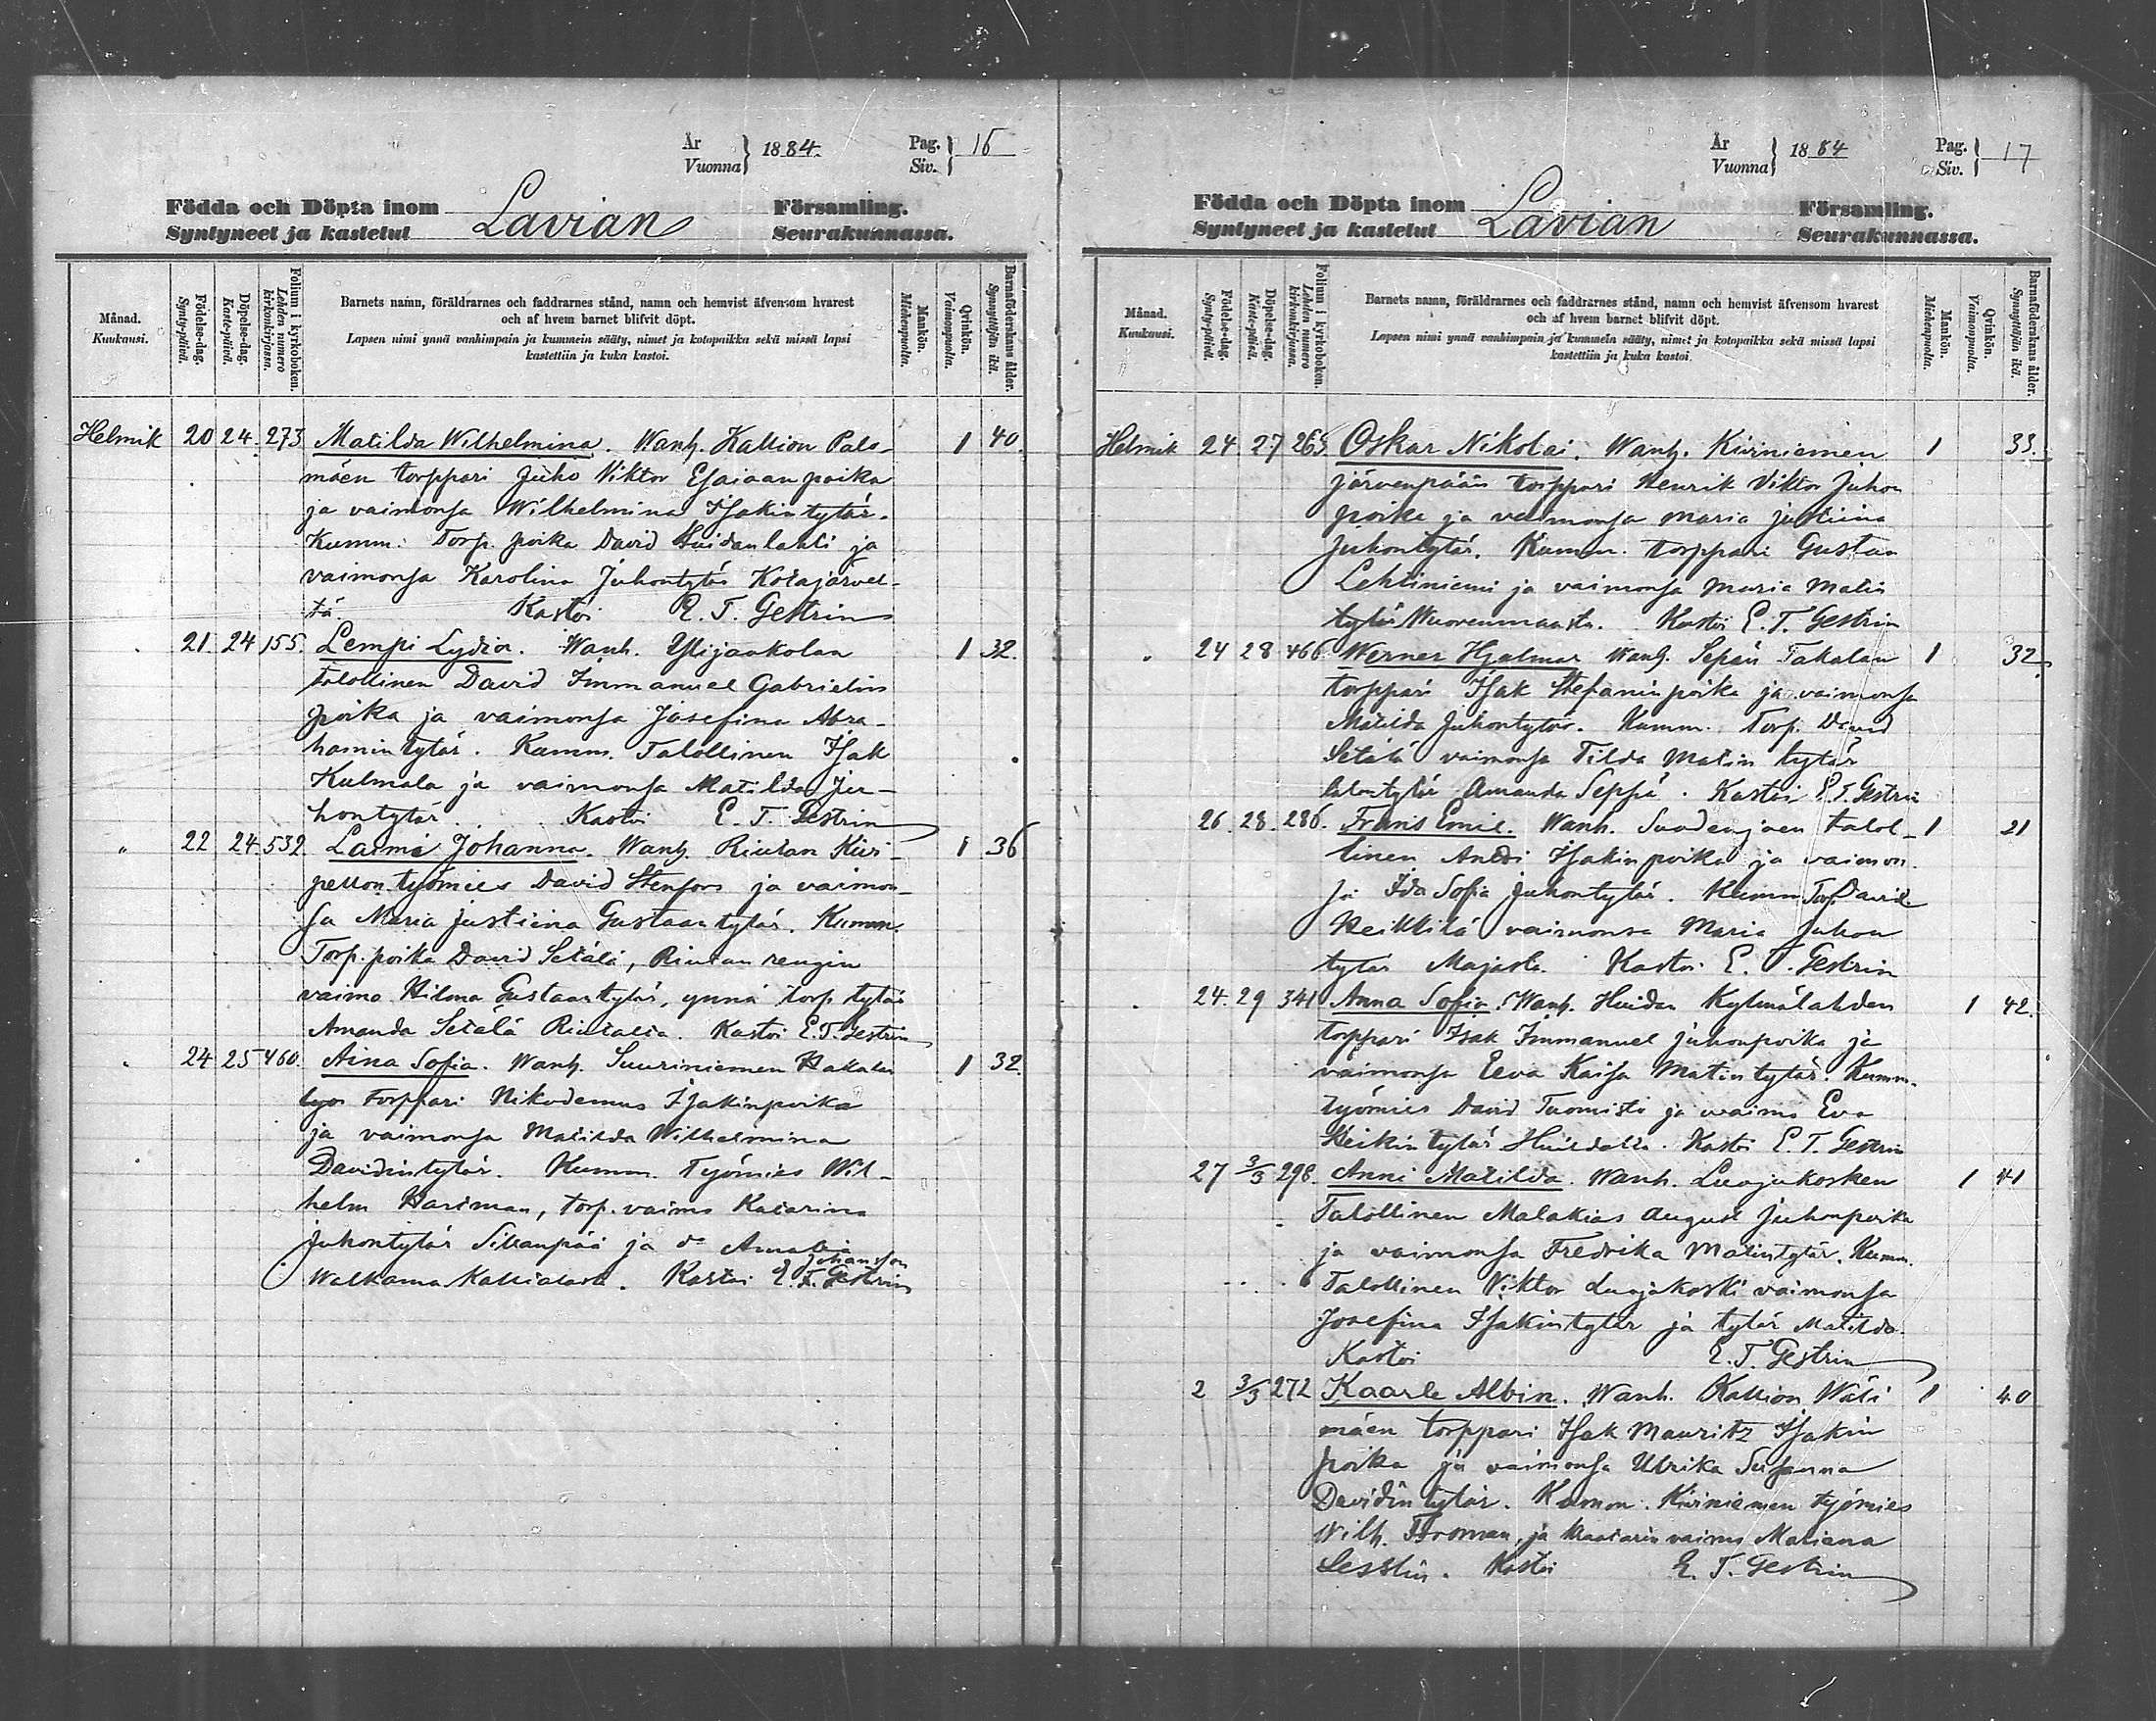 År
Vuonna } 1884. Pag.
Siv. } 16
Födda och Döpta inom Lavian Församling.
Syntyneet ja kastetut Seurakunnassa.
Månad.
Kuukausi.
Födelse-dag.
Synty-päivä.
Döpelse-dag.
Kaste-päivä.
Folium i kyrkoboken.
Lehden numero
kirkonkirjassa.
Barnets namn, föräldrarnes och faddrarnes stånd, namn och hemvist äfvensom hvarest
och af hvem barnet blifvit döpt.
Lapsen nimi ynnä vanhimpain ja kummein sääty, nimet ja kotopaikka sekä missä lapsi
kastettiin ja kuka kastoi.
Mankön.
Miehenpuolta.
Qvinkön.
Vaimonpuolta.
Barnaföderskans ålder.
Synnyttäjän ikä.
Helmik 20 24. 273 Matilda Wilhelmina. Wanh. Kallion Palo- 1 40.
mäen torppari Juho Viktor Esaiaan poika
ja vaimonsa Wilhelmina Isakin tytär.
Kumm: Torp. poika David Huidanlahti ja
vaimonsa Karolina Juhontytär Kotajärvel-
tä. Kastoi E. T. Gestrin
21. 24 155. Lempi Lydia. Wanh. Ylijaakolan 1 32.
talollinen David Immanuel Gabrielin
poika ja vaimonsa Josefina Abra-
hamin tytär. Kumm. Talollinen Isak
Kulmala ja vaimonsa Matilda Ju-
hontytär. Kastoi E. T. Gestrin
" 22 24. 532 Laimi Johanna. Wanh. Riutan Kivi- 1 36
pellon työmies David Stenfors ja vaimon-
sa Maria Justiina Gustaantytär. Kumm.
Torp. poika David Setälä, Riutan rengin
vaimo Hilma Gustaantytär, ynnä torp tytär
Amanda Setälä Riutalta. Kastoi E. T. Gestrin
24 25 460. Aina Sofia. Wanh. Suuriniemen Hakala 1 32.
torppari Nikodemus Isakinpoika
ja vaimonsa Matilda Wilhelmina
Davidintytär. Kumm. Työmies Wil-
helm Hartman, torp. vaimo Katarina
Juhontytär Sillanpää ja do Amalia
Johansson
Walkama Kallialasta. Kastoi E. T. Gestrin
År
Vuonna } 1884 Pag.
Siv. } 17
Födda och Döpta inom Lavian Församling.
Syntyneet ja kastetut Seurakunnassa.
Månad.
Kuukausi.
Födelse-dag.
Synty-päivä.
Döpelse-dag.
Kaste-päivä.
Folium i kyrkoboken.
Lehden numero
kirkonkirjassa.
Barnets namn, föräldrarnes och faddrarnes stånd, namn och hemvist äfvensom hvarest
och af hvem barnet blifvit döpt.
Lapsen nimi ynnä vanhimpain ja kummein sääty, nimet ja kotopaikka sekä missä lapsi
kastettiin ja kuka kastoi.
Mankön.
Miehenpuolta.
Qvinkön.
Vaimonpuolta.
Barnaföderskans ålder.
Synnyttäjän ikä.
Helmik 24 27 265 Oskar Nikolai. Wanh. Kiviniemen 1 33.
järvenpään torppari Henrik Viktor Juhon
poika ja vaimonsa Maria Justiina
Juhontytär. Kumm. torppari Gustaa
Lehtiniemi ja vaimonsa Maria Matin
tytär Wuorenmaasta. Kastoi E. T. Gestrin
" 24 28 466. Werner Hjalmar Wanh. Sepän Takalan 1 32.
torppari Isak Stefanin poika ja vaimonsa
Matilda Juhontytär. Kumm. Torp. David
Setälä vaimonsa Tilda Matin tytär
talontytär Amanda Seppä. Kastoi E. T. Gestrin
26. 28. 286. Frans Emil. Wanh. Suodenjoen talol- 1 21
linen Antti Isakin poika ja vaimon
sa Ida Sofia Juhontytär. Kumm Torp David
Heikkilä vaimonsa Maria Juhon
tytär Majasta. Kastoi E. T. Gestrin
24. 29 341 Anna Sofia. Wanh. Huidan Kylmälahden 1 42.
torppari Isak Immanuel Juhonpoika ja
vaimonsa Eeva Kaisa Matin tytär. Kumm.
työmies David Tuomisto ja vaimo Eva
Heikin tytär Huidalta. Kastoi E. T. Gestrin
27 3/3 298. Anni Matilda. Wanh. Luojukosken 1 41
Talollinen Malakias August Juhonpoika
ja vaimonsa Fredrika Matintytär. Kumm.
Talollinen Viktor Luojukoski vaimonsa
Josefina Isakintytär ja tytär Matilda.
Kastoi E. T. Gestrin
2 3/3 272 Kaarle Albin. Wanh. Kallion Wäli 1 40
mäen torppari Isak Mauritz Isakin
poika ja vaimonsa Ulrika Susanna
Davidin tytär. Kumm. Kiviniemen työmies
Wilh. Froman, ja vaimo Mariana
Kastoi E. T. Gestrin